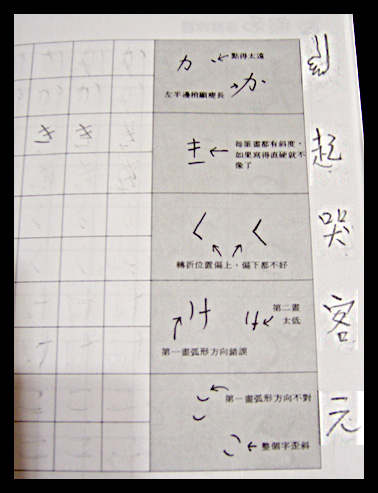 か 點得太遠
左半邊稍顯瘦長 か
き き
き 每筆畫都有斜度，
如果寫得直硬就不
像了
起
哭
く く
轉折位置偏上、偏下都不好
け け 第二畫
太低
第一畫弧形方向錯誤
客
こ 第一畫弧形方向不對
こ 整個字歪斜
元